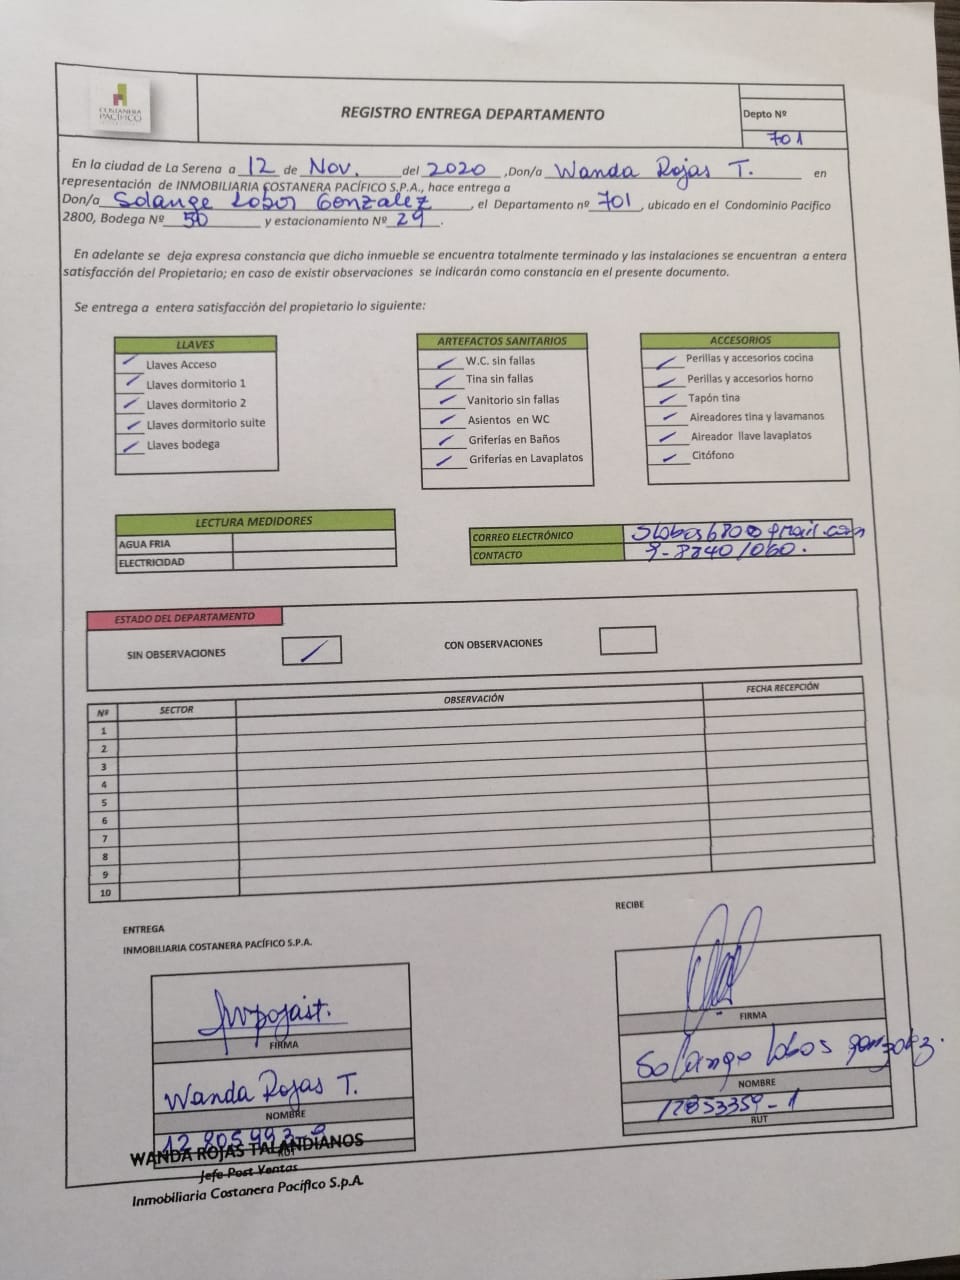 COSTANERA
PACÍFICO
REGISTRO ENTREGA DEPARTAMENTO
Depto Nº
701
En la ciudad de La Serena a 12 de Nov. del 2020 ,Don/a Wanda Rojas T. en
representación de INMOBILIARIA COSTANERA PACÍFICO S.P.A., hace entrega a
Don/a Solange Lobos Gonzalez, el Departamento nº 701, ubicado en el Condominio Pacifico
2800, Bodega Nº 50 y estacionamiento Nº 29.
En adelante se deja expresa constancia que dicho inmueble se encuentra totalmente terminado y las instalaciones se encuentran a entera
satisfacción del Propietario; en caso de existir observaciones se indicarán como constancia en el presente documento.
Se entrega a entera satisfacción del propietario lo siguiente:
LLAVES
Llaves Acceso
Llaves dormitorio 1
Llaves dormitorio 2
Llaves dormitorio suite
Llaves bodega
ARTEFACTOS SANITARIOS
W.C. sin fallas
Tina sin fallas
Vanitorio sin fallas
Asientos en WC
Griferías en Baños
Griferías en Lavaplatos
ACCESORIOS
Perillas y accesorios cocina
Perillas y accesorios horno
Tapón tina
Aireadores tina y lavamanos
Aireador llave lavaplatos
Citófono
LECTURA MEDIDORES
AGUA FRIA
ELECTRICIDAD
CORREO ELECTRÓNICO
CONTACTO 9-88401060.
ESTADO DEL DEPARTAMENTO
SIN OBSERVACIONES
CON OBSERVACIONES
Nº SECTOR OBSERVACIÓN FECHA RECEPCIÓN
1
2
3
4
5
6
7
8
9
10
ENTREGA
INMOBILIARIA COSTANERA PACÍFICO S.P.A.
FIRMA
Wanda Rojas T.
NOMBRE
RUT
WANDA ROJAS TALANDIANOS
Jefe Post Ventas
Inmobiliaria Costanera Pacífico S.p.A.
RECIBE
FIRMA
Solange Lobos Gonzalez.
NOMBRE
12853359-1
RUT